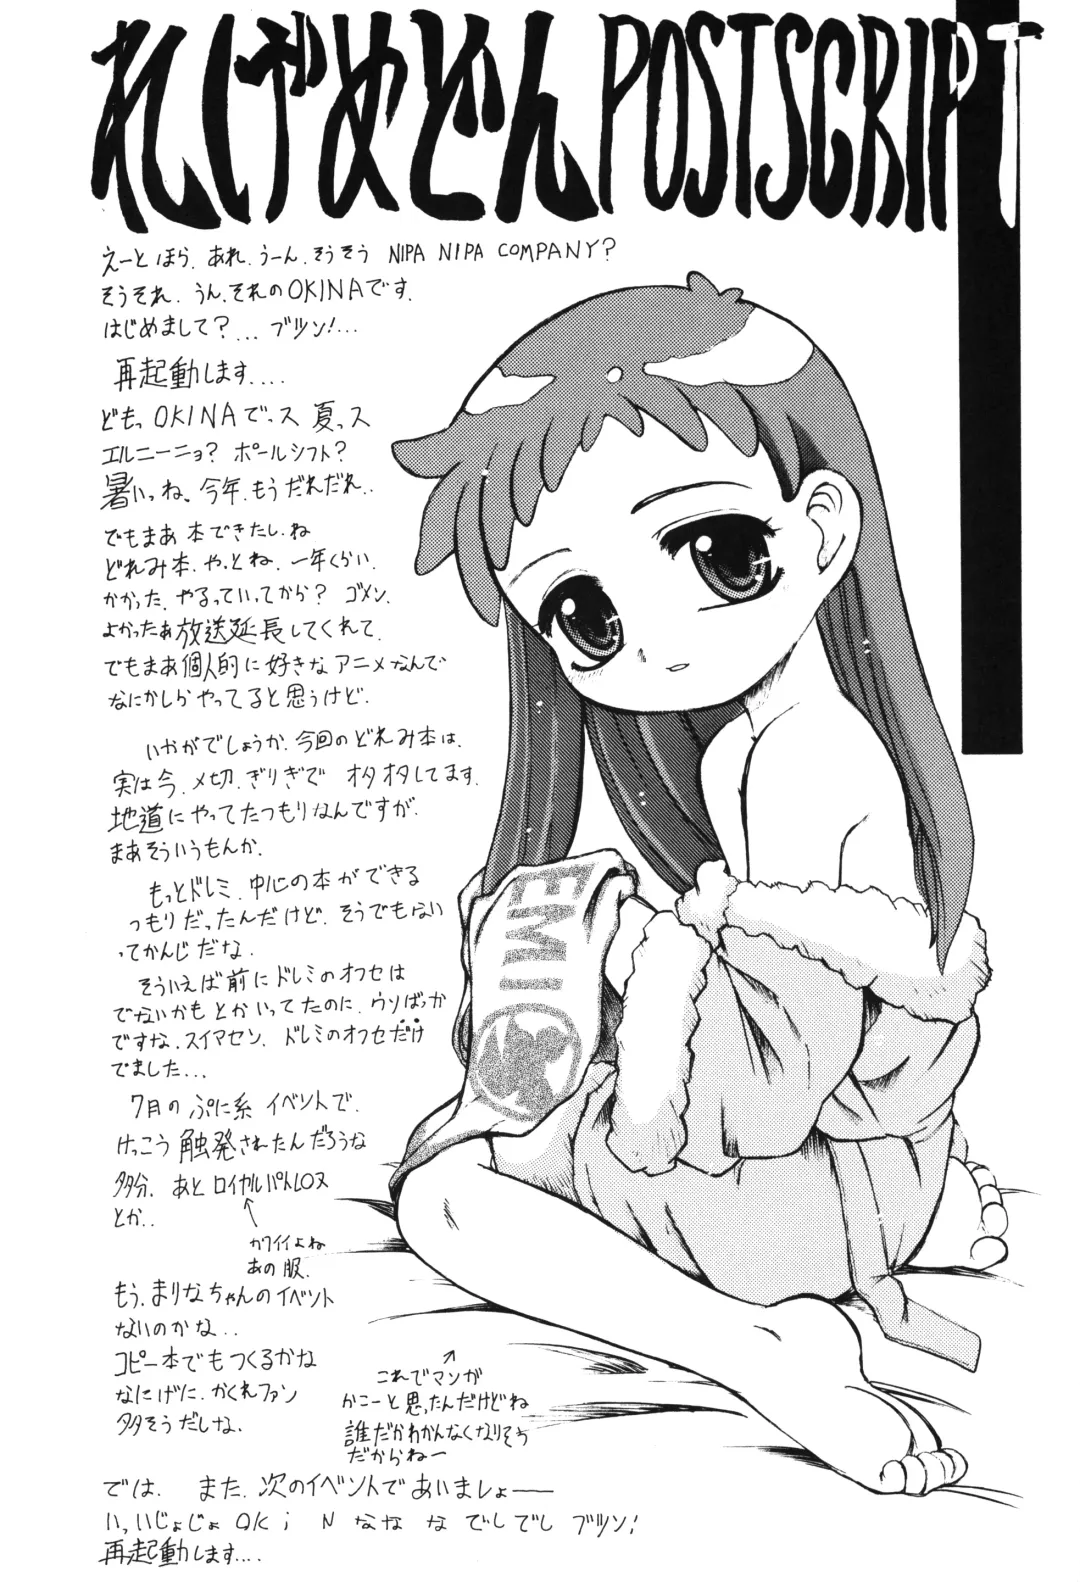 れしげめどん POSTSCRIPT
えーとほら、あれ、うーん、そうそう NIPA NIPA COMPANY?
そうそれ、うん、それのOKINAです。
はじめまして?... ブツン!...
再起動します....
どもっOKINAでっス 夏っス
エルニーニョ? ポールシフト?
暑いっね、今年、もうだれだれ..
でもまあ本できたし、ね
どれみ本、やっとね、一年くらい、
かかった、やるっていってから? ゴメン、
よかったあ放送延長してくれて、
でもまあ個人的に好きなアニメなんで
なにかしらやってると思うけど、
いかがでしょうか、今回のどれみ本は、
実は今、〆切、ぎりぎで オタオタしてます、
地道にやってたつもりなんですが、
まあそういうもんか、
もっとドレミ、中心の本ができる
つもりだったんだけど、そうでもない
ってかんじだな、
そういえば前にドレミのオフセは
でないかもとかいってたのに、ウソばっか
ですな、スイマセン、ドレミのオフセだけ
でました...
7月のぷに系イベントで、
けっこう触発されたんだろうな
多分、あとロイヤルパトレーヌ
とか..
カワイイよね
あの服、
もう、まりなちゃんのイベント
ないのかな..
コピー本でもつくるかな
なにげに、かくれファン
多そうだしな、
これでマンガ
かこーと思ったんだけどね
誰だかわかんなくなりそう
だからねー
では、また、次のイベントであいましょー
いっいじょじょ OKiNななな でしでし ブツン!
再起動します....
EMI